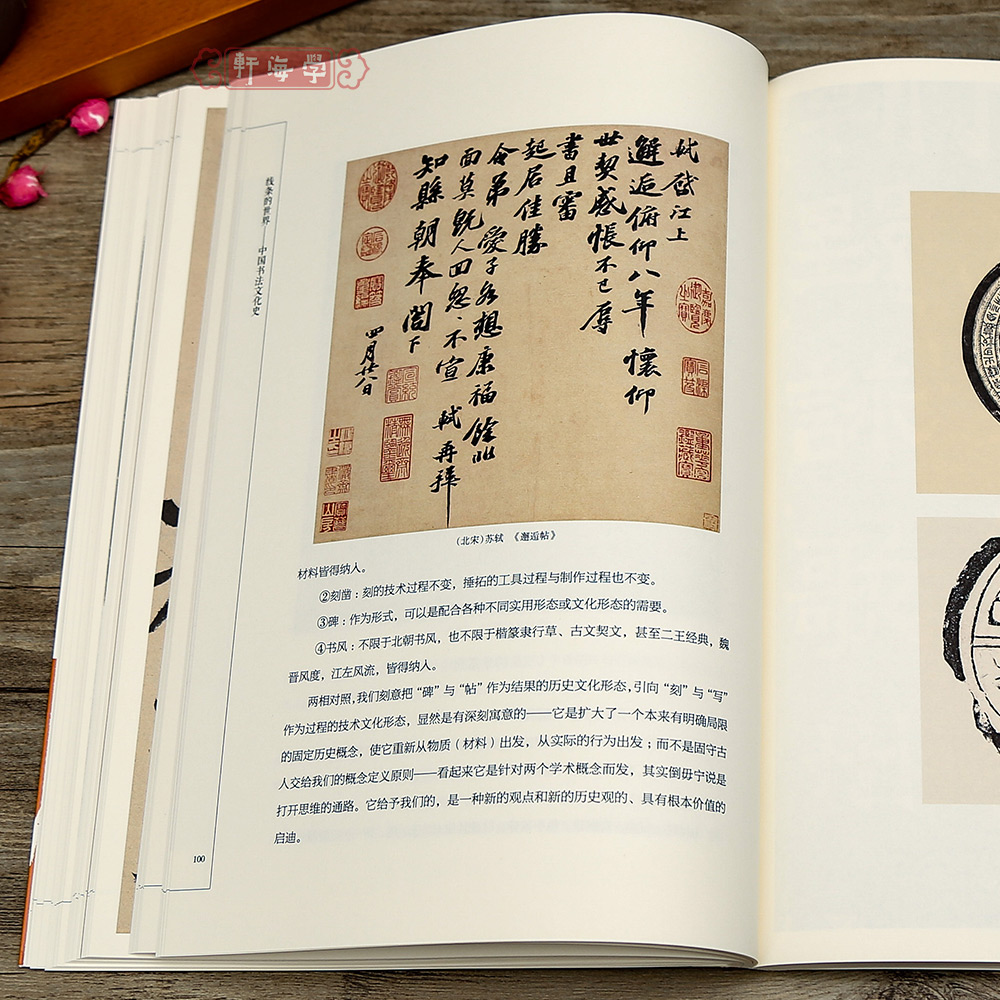 軒海学
线条的世界——中国书法文化史
轼启江上
邂逅俯仰八年懷仰
世契感悵不已辱
書且審
起居佳勝
令弟愛子各想康福餘非
面莫既人回怱〻不宣 軾再拜
知縣朝奉閣下
四月廿八日
(北宋)苏轼 《邂逅帖》
材料皆得纳入。
②刻凿：刻的技术过程不变，捶拓的工具过程与制作过程也不变。
③碑：作为形式，可以是配合各种不同实用形态或文化形态的需要。
④书风：不限于北朝书风，也不限于楷篆隶行草、古文契文，甚至二王经典，魏
晋风度，江左风流，皆得纳入。
两相对照，我们刻意把“碑”与“帖”作为结果的历史文化形态，引向“刻”与“写”
作为过程的技术文化形态，显然是有深刻寓意的——它是扩大了一个本来有明确局限
的固定历史概念，使它重新从物质（材料）出发，从实际的行为出发；而不是固守古
人交给我们的概念定义原则——看起来它是针对两个学术概念而发，其实倒毋宁说是
打开思维的通路。它给予我们的，是一种新的观点和新的历史观的、具有根本价值的
启迪。
100